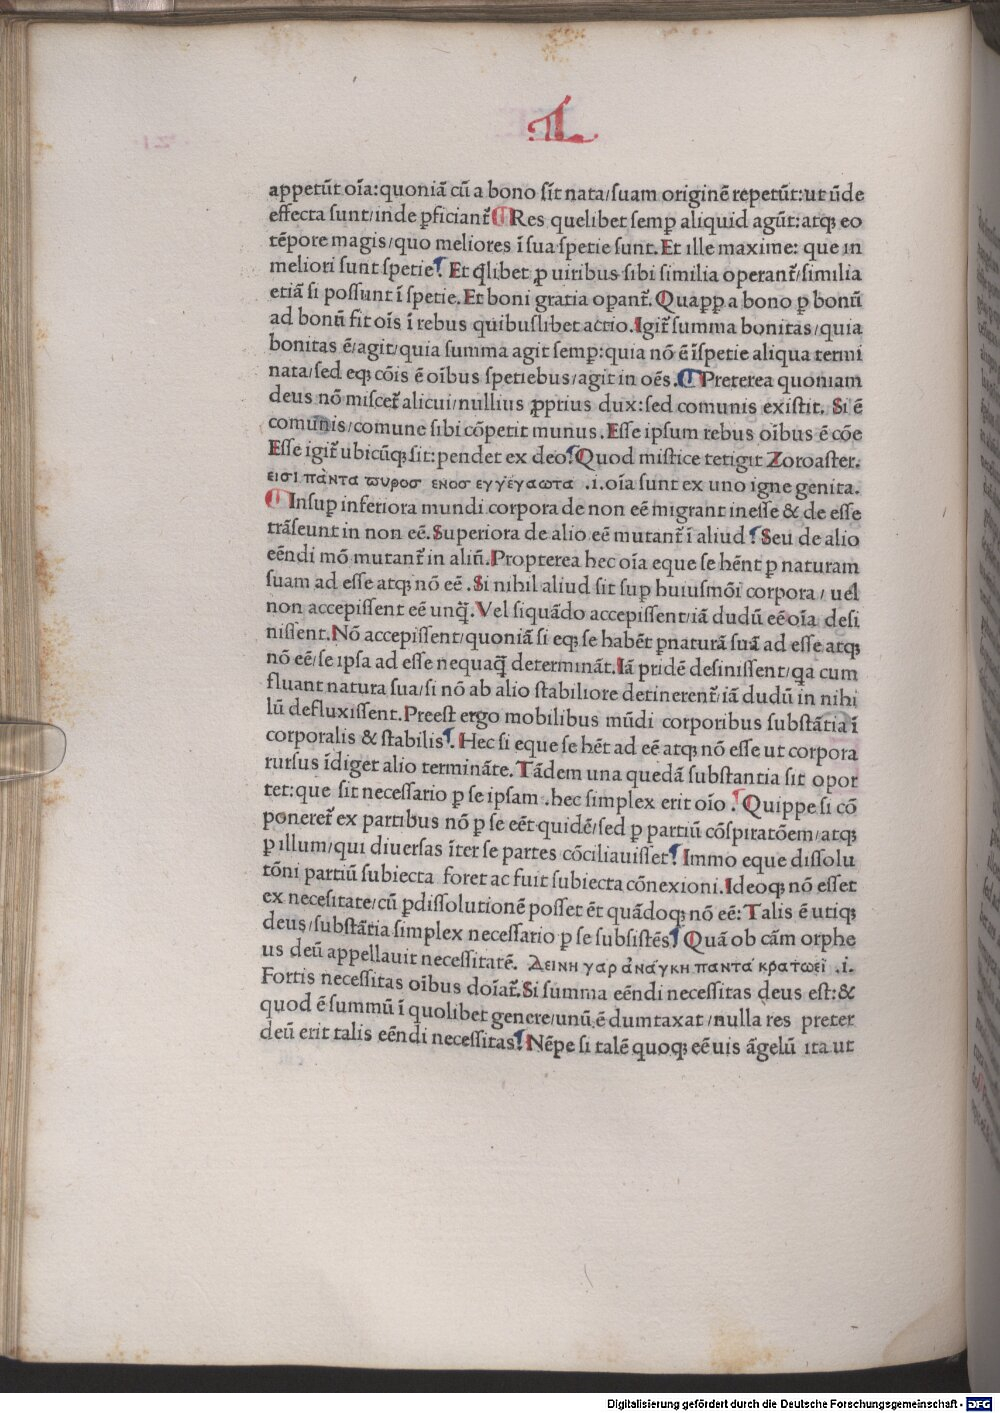 L
appetūt oīa:quoniā cū a bono sīt nata/suam originē repetūt:ut ūde
effecta sunt/inde ꝑficiant᷑ ¶ Res quelibet semꝑ aliquid agūt:atqꝫ eo
tēpore magis/quo meliores ī sua spetie sunt. Et ille maxime: que in
meliori sunt spetie. Et q̄libet ꝓ uiribus sibi similia operant᷑/similia
etiā si possunt ī spetie. Et boni gratia opant᷑. Quaꝓꝑ a bono ꝑ bonū
ad bonū fit oīs ī rebus quibuslibet actio. Igit᷑ summa bonitas/quia
bonitas ē/agit/quia summa agit semꝑ:quia nō ē īspetie aliqua termi
nata/sed eqꝫ cōis ē oībus spetiebus/agit in oēs. ¶ Preterea quoniam
deus nō miscet᷑ alicui/nullius ꝓprius dux:sed comunis existit. Si ē
comunis/comune sibi cōpetit munus. Esse ipsum rebus oībus ē cōe
Esse igit᷑ ubicūqꝫ sit:pendet ex deo. Quod mistice tetigit Zoroaster.
εισι πὰντα πυροσ ενοσ εγγεγαωτα .i.oīa sunt ex uno igne genita.
¶ Insuꝑ inferiora mundi corpora de non eē migrant inesse & de esse
trāseunt in non eē. Superiora de alio eē mutant᷑ ī aliud. Seu de alio
eēndi mō mutant᷑ in aliū. Propterea hec oīa eque se hēnt ꝑ naturam
suam ad esse atqꝫ nō eē. Si nihil aliud sit suꝑ huiusmōi corpora/ uel
non accepissent eē unq̄. Vel siquādo accepissent/iā dudū eē oīa desi
nissent. Nō accepissent/quoniā si eqꝫ se habēt ꝑnaturā suā ad esse atqꝫ
nō eē/se ipsa ad esse nequaq̄ determināt. Iā pridē desinissent/qa cum
fluant natura sua/si nō ab alio stabiliore detinerent᷑/iā dudū in nihi
lū defluxissent. Preest ergo mobilibus mūdi corporibus substātia ī
corporalis & stabilis. Hec si eque se hēt ad eē atqꝫ nō esse ut corpora
rursus īdiget alio termināte. Tādem una quedā substantia sit opor
tet:que sit necessario ꝑ se ipsam .hec simplex erit oīo. Quippe si cō
poneret᷑ ex partibus nō ꝑ se eēt quidē/sed ꝑ partiū cōspiratōem/atqꝫ
ꝑ illum/qui diuersas īter se partes cōciliauisset. Immo eque dissolu
tōni partiū subiecta foret ac fuit subiecta cōnexioni. Ideoqꝫ nō esset
ex necesitate/cū ꝑdissolutionē posset ēt quādoqꝫ nō eē: Talis ē utiqꝫ
deus/substātia simplex necessario ꝑ se subsistēs. Quā ob cām orphe
us deū appellauit necessitatē. Δεινη γαρ ἀνάγκη παντα κρατωεὶ .i.
Fortis necessitas oībus doīat᷑. Si summa eēndi necessitas deus est:&
quod ē summū ī quolibet genere/unū ē dumtaxat/nulla res preter
deū erit talis eēndi necessitas. Nēpe si talē quoqꝫ eē uis āgelū ita ut
Digitalisierung gefördert durch die Deutsche Forschungsgemeinschaft - DFG